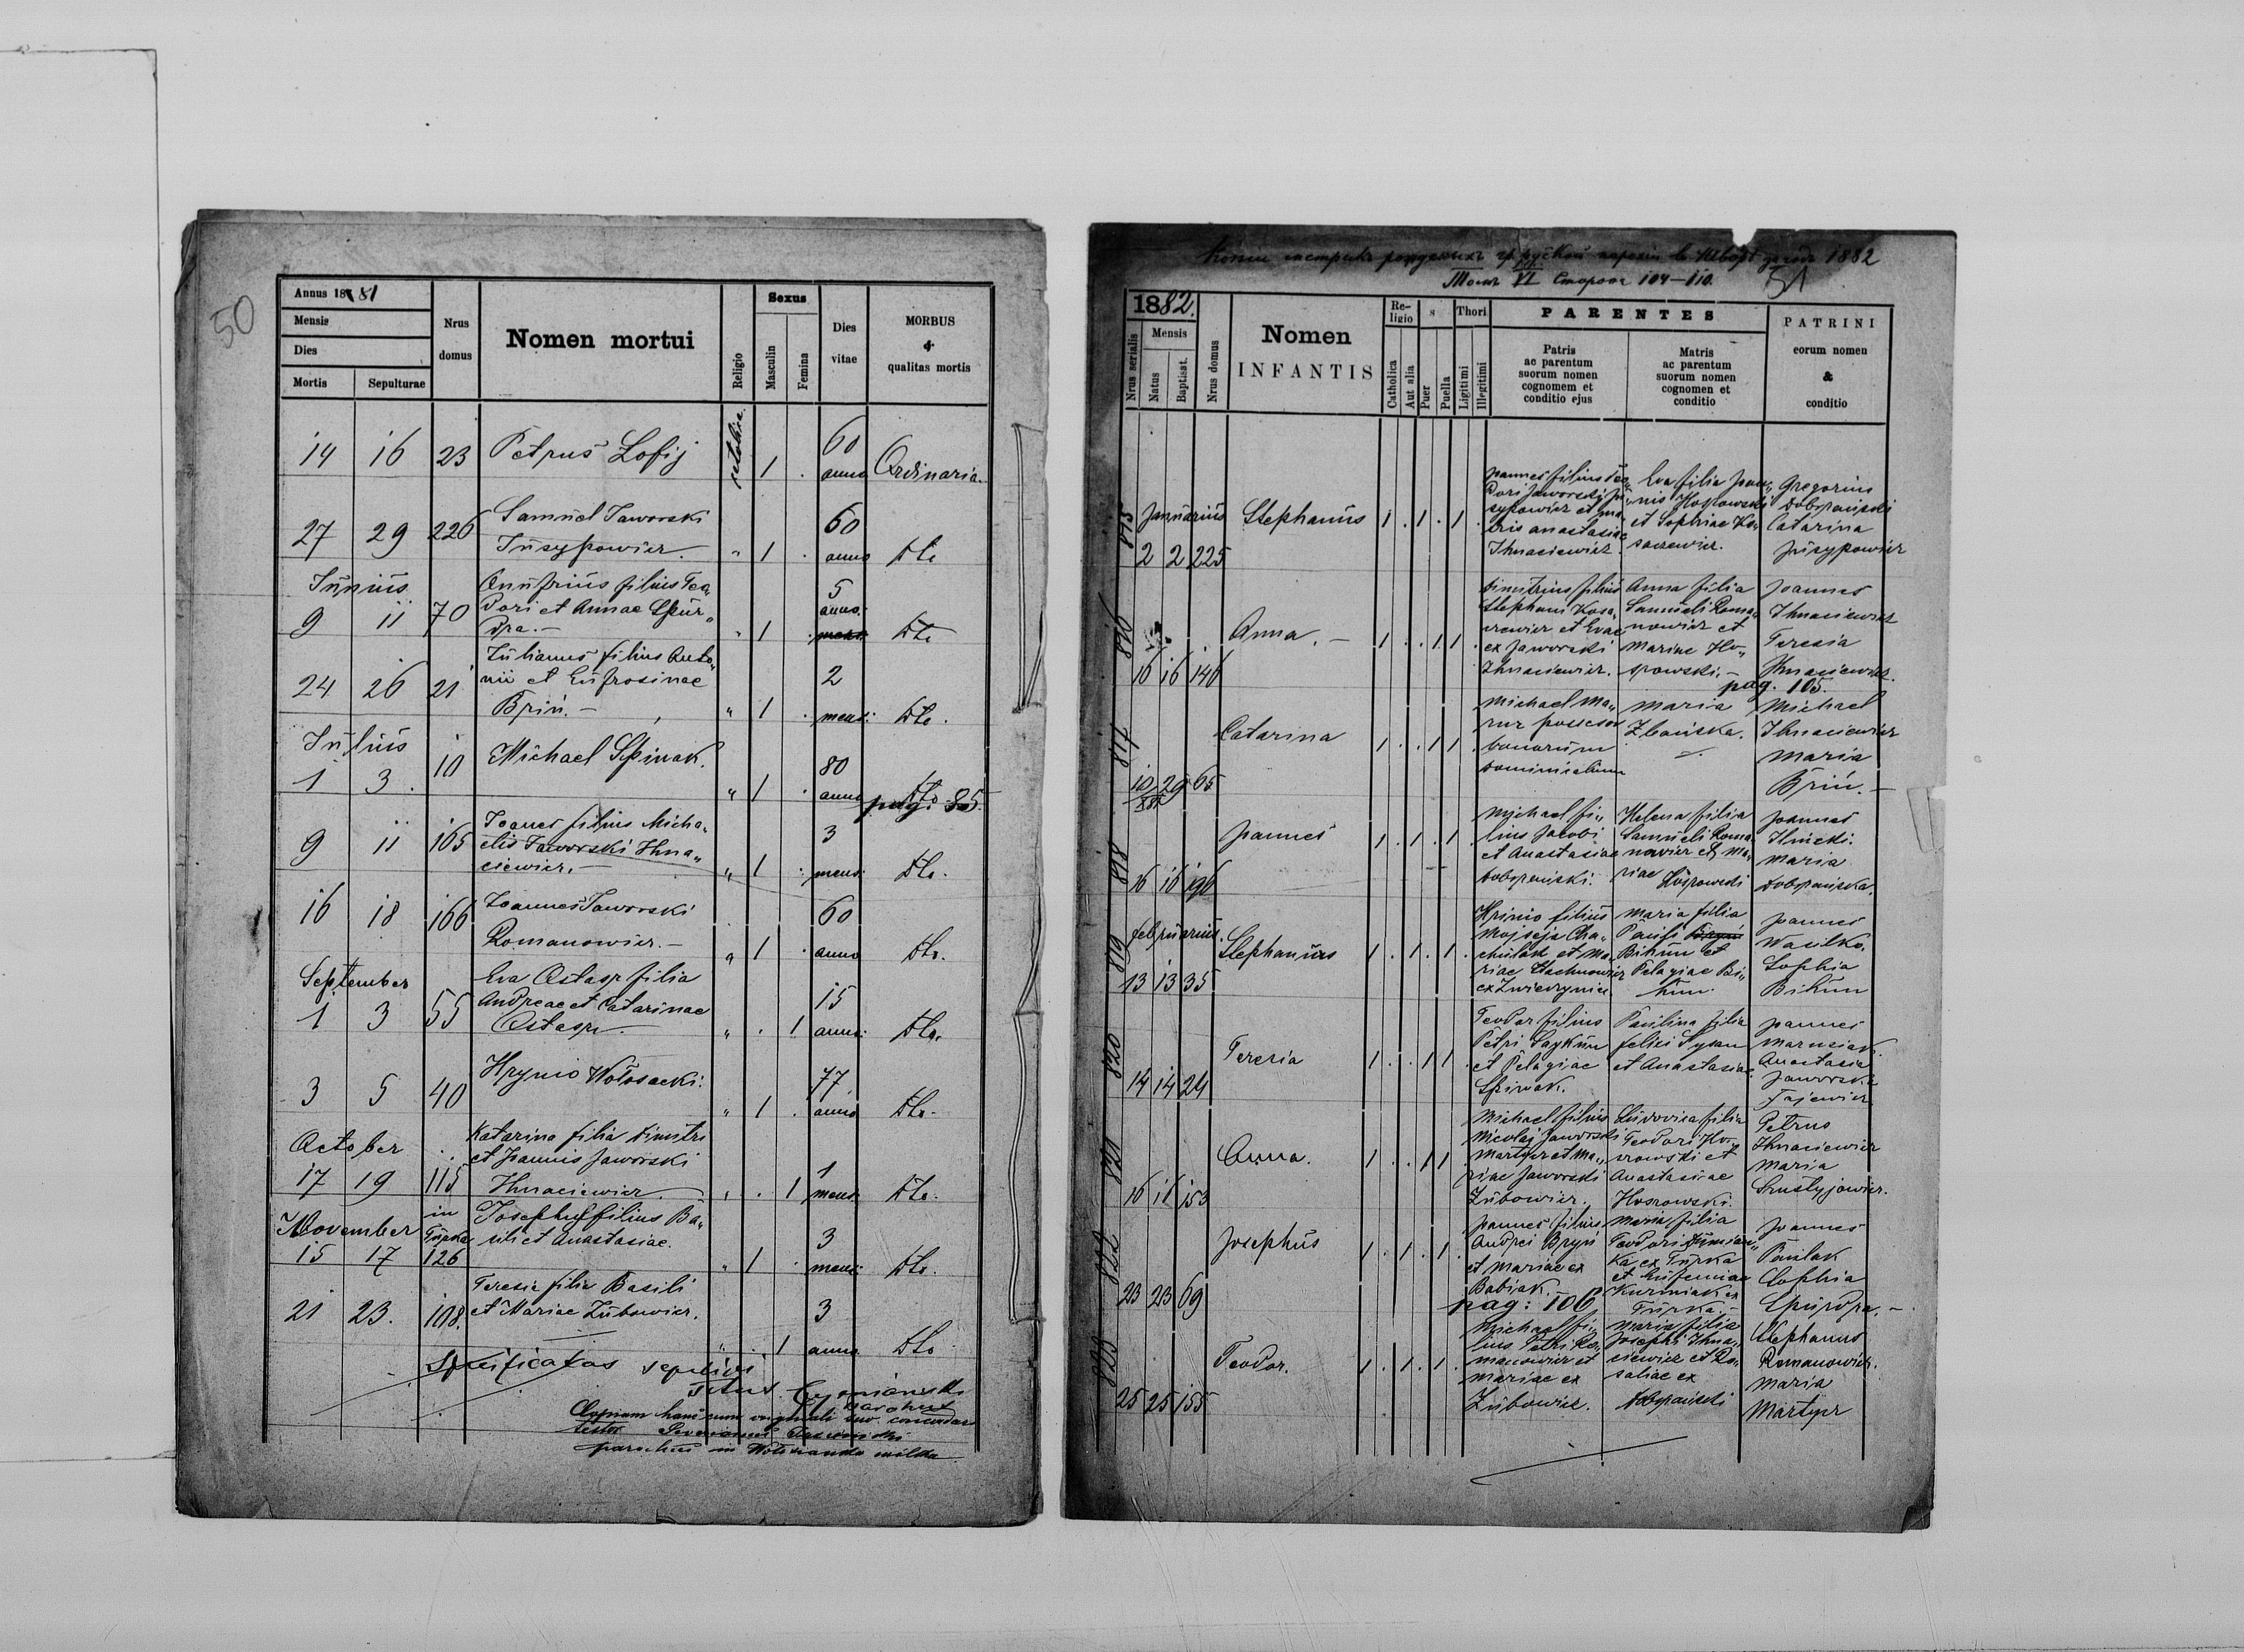 50
Annus 1881
Mensis
Dies
Mortis Sepulturae
Nrus domus
Nomen mortui
Religio
Sexus
Masculin
Femina
Dies vitae
MORBUS
&
qualitas mortis
14 16 23 Petrus Lofij 1 . 60 anno Ordinaria
27 29 226 Samuel Jaworski
Jusypowicz. " 1 . 60 anno Dto
Junius
9 11 70 Onufrius filius Teo„
dori et Annae Spur„
dza.— " 1 . 5 anno. Dto
24 26 21 Julianus filius Anto„
nii et Eufrosinae
Brin.— " 1 . 2 mens: Dto.
Julius
1 3. 10 Michael Spiwak. " 1 . 80 anno Dto
pag. 85.
9 11 165 Joanes filius Micha„
elis Jaworski Ihna„
ciewicz.— " 1 . 3 mens: Dto.
16 18 166 Joannes Jaworski
Romanowicz.— " 1 . 60 anno Dto.
September
1 3 55 Eva Ostasz filia
Andreae et Catarinae
Ostasz. " . 1 15 anno: Dto.
3 5 40 Hrynio Wołosacki. " 1 . 77 anno Dto.
October
17 19 115 Katarina filia Dimitri
et Joannis Jaworski
Ihnaciewicz. " . 1 1 mens: Dto.
November
15 17 in Turka 126 Josephus filius Ba„
sili et Anastasiae. " 1 . 3 mens: Dto.
21 23. 108. Teresia filia Basili
et Mariae Zubowicz. " . 1 3 anno Dto
Specificatas
parochus
Copiam hanc cum originali suo concordare
testor
parochus in
51
1882
VI Сторона 104—110.
1882.
Nrus serialis
Mensis
Natus
Baptisat.
Nrus domus
Nomen
INFANTIS
Re-ligio
Catholica
Aut alia
s
Puer
Puella
Thori
Ligitimi
Illegitimi
PARENTES
Patris
ac parentum
suorum nomen
cognomem et
conditio ejus
Matris
ac parentum
suorum nomen
cognomen et
conditio
PATRINI
eorum nomen
&
conditio
815 Januarius
2 2 225 Stephanus 1 . 1 . 1 .
Joannes filius Teo„
dori Jaworski Ju„
sypowicz et ma„
tris Anastasiae
Ihnaciewicz.
Eva filia Joan„
nis
et Sophiae Ko„
saczewicz.
Gregorius
Dobrzański
Catarina
Jusypowicz
816
16 16 146 Anna.— 1 . . 1 1 .
Dimitrius filius
Stephani Kosa„
czewicz et Evae
ex Jaworski
Ihnaciewicz.
Anna filia
Samueli Roma„
nowicz et
Mariae
Joannes
Ihnaciewicz
Teresia
Ihnaciewicz.
pag. 105.
817
29 65 Catarina 1 . . 1 1 .
Michael Ma„
zur possesor
bonorum
dominicalium
Maria
Michael
Ihnaciewicz
Maria
Brin.—
818
16 16 196 Joannes 1 . 1 . 1 .
Michael fi„
lius Jacobi
et Anastasiae
Dobrzański.
Helena filia
Samueli Roma„
nowicz et Ma„
riae
Joannes
Ilnicki.
Maria
Dobrzańska.
819 Februarius.
13 13 35 Stephanus 1 . 1 . 1 .
Hrinio filius
Mojseja
et Ma„
riae
Maria filia
Pauli
Bihun et
Pelagiae Bi„
hun.
Joannes
Wasilko.
Sophia
Bihun
820
14 14 24 Teresia 1 . . 1 1 .
Teodor filius
Petri
et Pelagiae
Spiwak.
Paulina filia
felici
et Anastasiae.
Joannes
Marusiak.
Anastasia
Jaworska
Fajewicz
16 16 153 Anna. 1 . . 1 1 .
Michael filius
Nicolaj Jaworski
Martycz et Ma„
riae Jaworski
Zubowicz.
Ludovica filia
Teodori
et
Anastasiae
Petrus
Ihnaciewicz
Maria
822
23 23 69 Josephus 1 . 1 . 1 .
Joannes filius
Andrei Bryń
et Mariae ex
Babiak.
Maria filia
Teodori
ka ex Turka
et Eufemiae
Kuzniak ex
Turka.—
Joannes
Pawlak
Sophia
Spurdza.—
pag: 106
823
25 25 155 Teodor. 1 . 1 . 1 .
Michael fi„
lius Petri Ro„
manowicz et
Mariae ex
Zubowicz.
Maria filia
Josephi Ihna„
ciewicz et Ro„
saliae ex
Dobrzański
Stephanus
Romanowicz.
Maria
Martycz